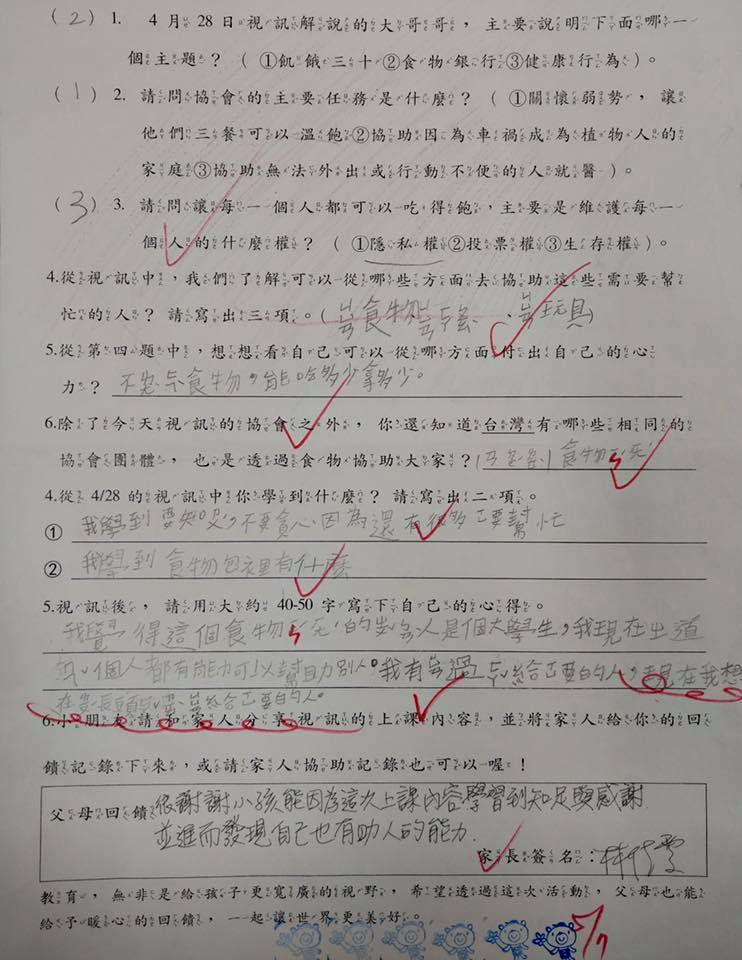 (2) 1. 4月28日視訊解說的大哥哥，主要說明下面哪一
個主題？（①飢餓三十②食物銀行③健康行為）。
(1) 2. 請問協會的主要任務是什麼？（①關懷弱勢，讓
他們三餐可以溫飽②協助因為車禍成為植物人的
家庭③協助無法外出或行動不便的人就醫）。
(3) 3. 請問讓每一個人都可以吃得飽，主要是維護每一
個人的什麼權？（①隱私權②投票權③生存權）。
4.從視訊中，我們了解可以從哪些方面去協助這些需要幫
忙的人？請寫出三項。(ㄐㄩㄢ食物、ㄐㄩㄢ、ㄐㄩㄢ玩具)
5.從第四題中，想想看自己可以從哪方面付出自己的心
力？ 食物，能吃多少拿多少。
6.除了今天視訊的協會之外，你還知道台灣有哪些相同的
協會團體，也是透過食物協助大家？ 食物
4.從 4/28 的視訊中你學到什麼？請寫出二項。
① 我學到要知，不要貪心，因為還有很多要幫忙
② 我學到食物包裡有什麼
5.視訊後，請用大約 40-50 字寫下自己的心得。
我覺得這個食物的人是個大學生，我現在
個人都有能力可以幫助別人。我有給的人，現在我想
在長頭，給的人。
6.小朋友請和家人分享視訊的上課內容，並將家人給你的回
饋記錄下來，或請家人協助記錄也可以喔！
父母回饋 很謝謝小孩能因為這次上課內容學習到知足與感謝
並進而發現自己也有助人的能力.
家長簽名：
教育，無非是給孩子更寬廣的視野，希望透過這次活動，父母也能
給予暖心的回饋，一起讓世界更美好。
5/7